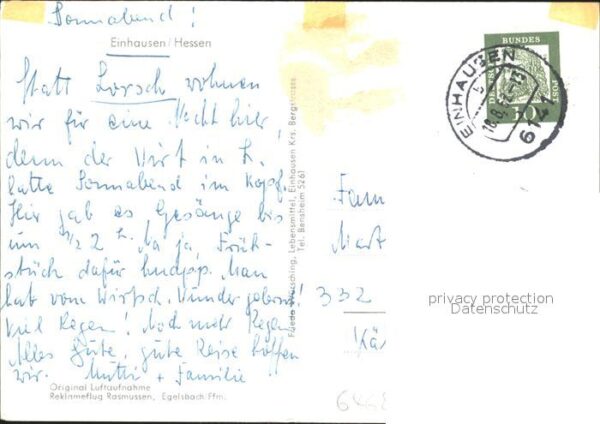 Sonnabend!
Einhausen/Hessen
Statt Lorsch wohnen
wir für eine Nacht hier,
denn der Wirt in L.
hatte Sonnabend im Kopf.
Hier gab es Gesänge bis
um ½ 2 h. Na ja, Früh-
stück dafür knapp. Man
hat vom Wirtsch.
Viel Regen! Noch mehr Regen
Alles Gute, gute Reise hoffen
wir. Mutti + Familie
Original Luftaufnahme
Reklameflug Rasmussen, Egelsbach Ffm.
Lebensmittel, Einhausen Krs. Bergstrasse
Tel. Bensheim 5261
BUNDES
POST
EINHAUSEN
6141
Fam
Mart
332
Kä
privacy protection
Datenschutz